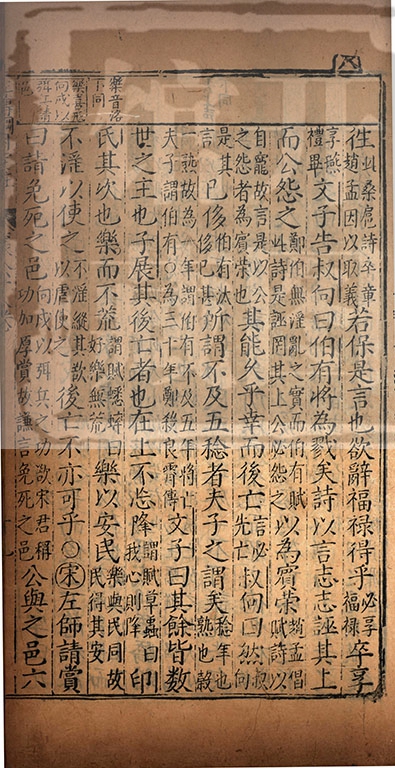 徃此桑扈詩卒章趙孟因以取義若保是言也欲辭福祿得乎必享福祿卒享
享燕禮畢文子告叔向曰伯有將為戮矣詩以言志志誣其上
而公怨之鄭伯無淫亂之實而伯有賦此詩是誣罔其上公必怨之以為賓榮趙孟倡賦詩以
自寵故言是以公之怨者為賓榮也其能久乎幸而後亡言必先亡叔向曰然叔向
是其言已侈伯有汰侈已甚所謂不及五稔者夫子之謂矣稔年也熟也穀
一熟故為一年謂伯有不及五年將亡夫子謂伯有○為三十年鄭殺良霄傳文子曰其餘皆數
世之主也子展其後亡者也在上不忘降謂賦草蟲曰我心則降印
氏其次也樂而不荒謂賦蟋蟀曰好樂無荒樂以安民樂與民同故民得其安
不淫以使之不淫縱其欲以虐使之後亡不亦可乎○宋左師請賞
曰請免死之邑向戌以弭兵之功欲宋君稱功加厚賞故謙言免死之邑公與之邑六
樂音洛
下同